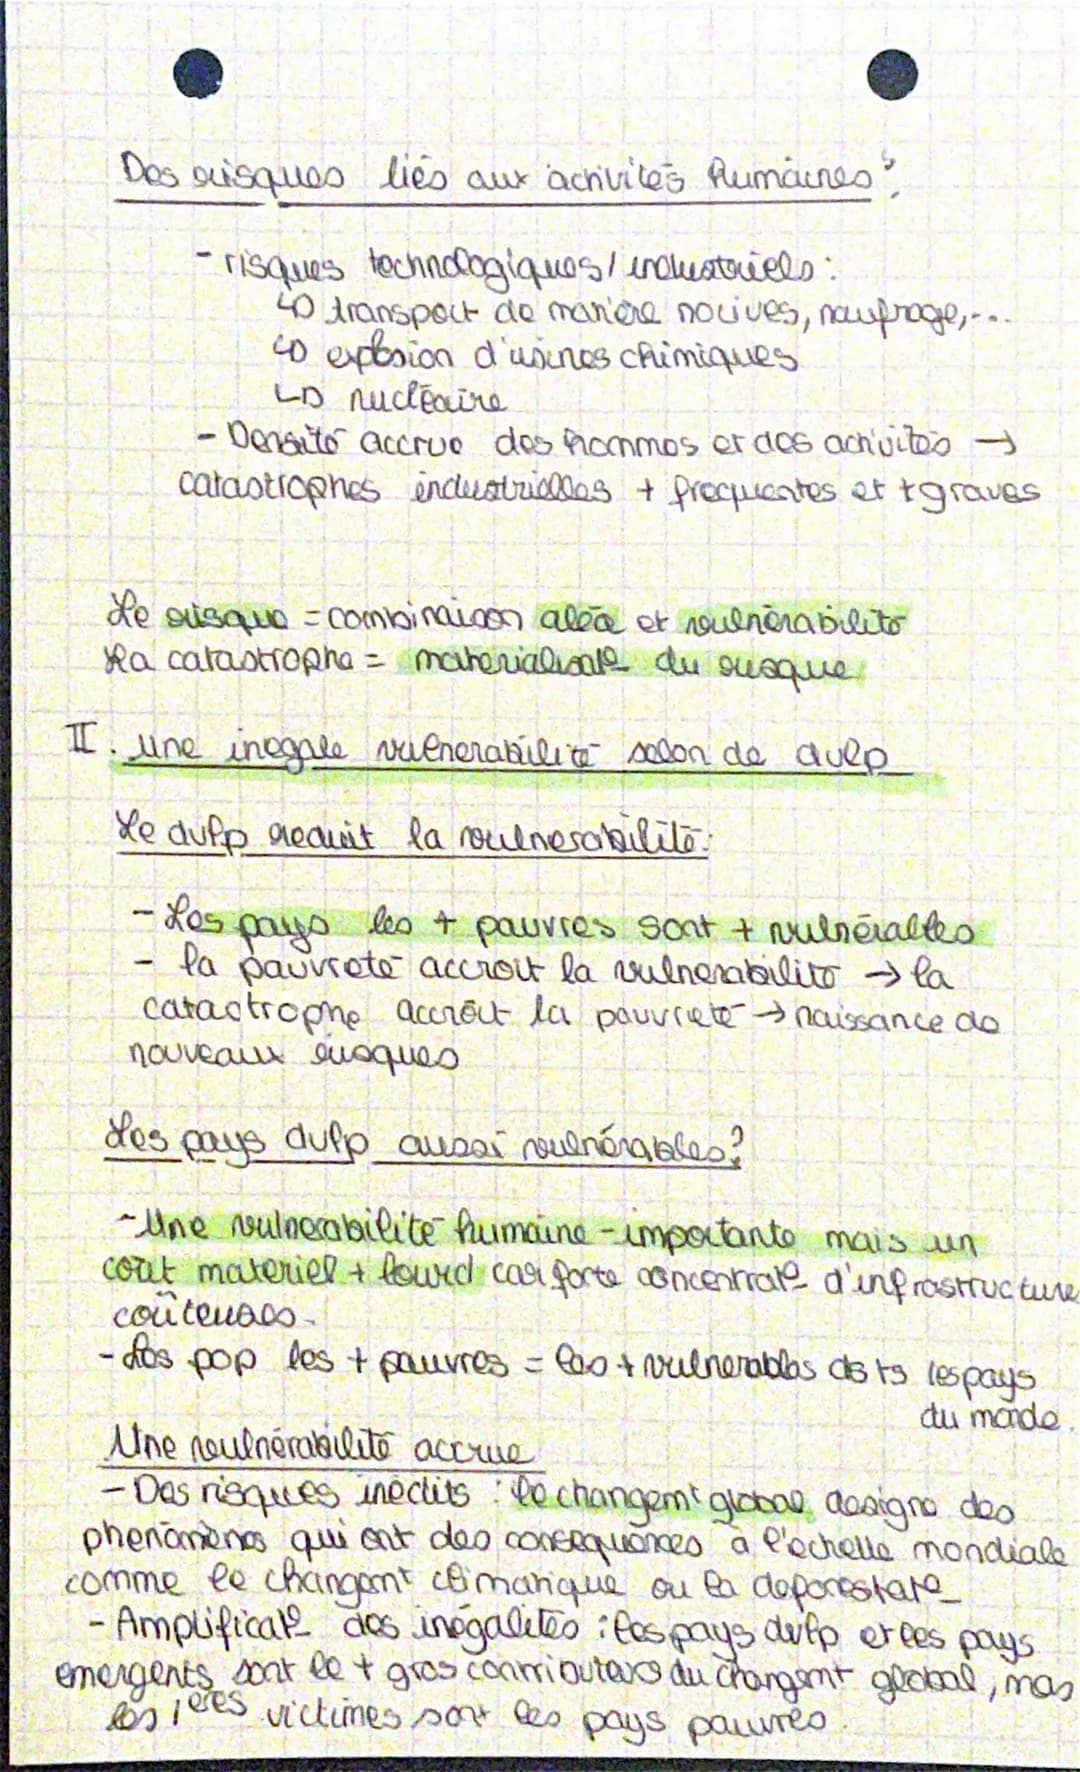 Des risques liés aux activités humaines :
- risques technologiques / industriels :
↳ transport de matière nocives, naufrage,...
↳ explosion d'usines chimiques
↳ nucléaire
- Densité accrue des hommes et des activités →
catastrophes industrielles + frequentes et + graves
Le risque = combinaison aléa et vulnérabilité
La catastrophe = materialisat° du risque
II. Une inegale vulnerabilité selon de dvlp
Le dvlp reduit la vulnerabilité :
- Les pays les + pauvres sont + vulnérables
- la pauvreté accroit la vulnerabilité → la
catastrophe accroît la pauvreté → naissance de
nouveaux risques
Les pays dvlp aussi vulnérables ?
- Une vulnerabilité humaine - importante mais un
coût materiel + lourd car forte concentrat° d'infrastructure
coûteuses.
- Les pop les + pauvres = les + vulnerables ds ts les pays
du monde.
Une vulnérabilité accrue
- Des risques inedits : le changemt global designe des
phenomènes qui ont des consequences à l'echelle mondiale
comme le changemt climatique ou la deforestat°
- Amplificat° des inégalités : les pays dvlp et les pays
emergents sont le + gros contributeurs du changemt global, mais
les 1ères victimes sont les pays pauvres.